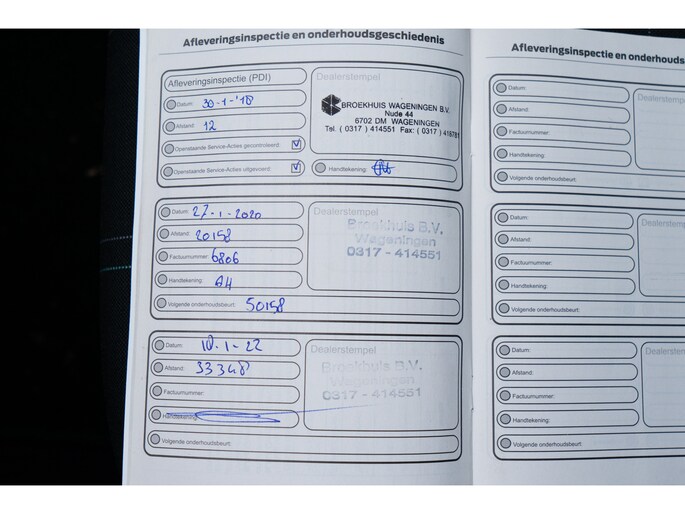 Afleveringsinspectie en onderhoudsgeschiedenis
Afleveringsinspectie (PDI)
Datum: 30-1-'18
Afstand: 12
Openstaande Service-Acties gecontroleerd:
Openstaande Service-Acties uitgevoerd:
Dealerstempel
BROEKHUIS WAGENINGEN B.V.
Nude 44
6702 DM WAGENINGEN
Tel. ( 0317 ) 414551 Fax: ( 0317 )
Handtekening:
Datum: 27-1-2020
Afstand: 20158
Factuurnummer: 6806
Handtekening:
Volgende onderhoudsbeurt: 50158
Dealerstempel
Broekhuis B.V.
Wageningen
0317 - 414551
Datum: 10-1-22
Afstand: 33348
Factuurnummer:
Handtekening:
Volgende onderhoudsbeurt:
Dealerstempel
Broekhuis B.V.
Wageningen
0317 - 414551
Afleveringsinspectie en onderhouds
Datum:
Afstand:
Factuurnummer:
Handtekening:
Volgende onderhoudsbeurt:
Dealerstempel
Datum:
Afstand:
Factuurnummer:
Handtekening:
Volgende onderhoudsbeurt:
Dealerstem
Datum:
Afstand:
Factuurnummer:
Handtekening:
Volgende onderhoudsbeurt:
Dealerstem